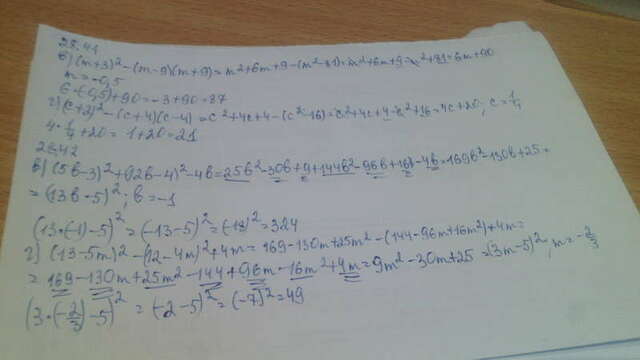 28.41
в) (m+3)² - (m-9)(m+9) = m²+6m+9-(m²-81) = m²+6m+9-m²+81 = 6m+90
m = -0,5
6·(-0,5)+90 = -3+90 = 87
г) (c+2)² - (c+4)(c-4) = c²+4c+4-(c²-16) = c²+4c+4-c²+16 = 4c+20; c = 1/4
4·1/4+20 = 1+20 = 21
28.42
в) (5b-3)²+(12b-4)²-4b = 25b²-30b+9+144b²-96b+16-4b = 169b²-130b+25 =
= (13b-5)²; b = -1
(13·(-1)-5)² = (-13-5)² = (-18)² = 324
г) (13-5m)²-(12-4m)²+4m = 169-130m+25m²-(144-96m+16m²)+4m =
= 169-130m+25m²-144+96m-16m²+4m = 9m²-30m+25 = (3m-5)²; m = -2/3
(3·(-2/3)-5)² = (-2-5)² = (-7)² = 49